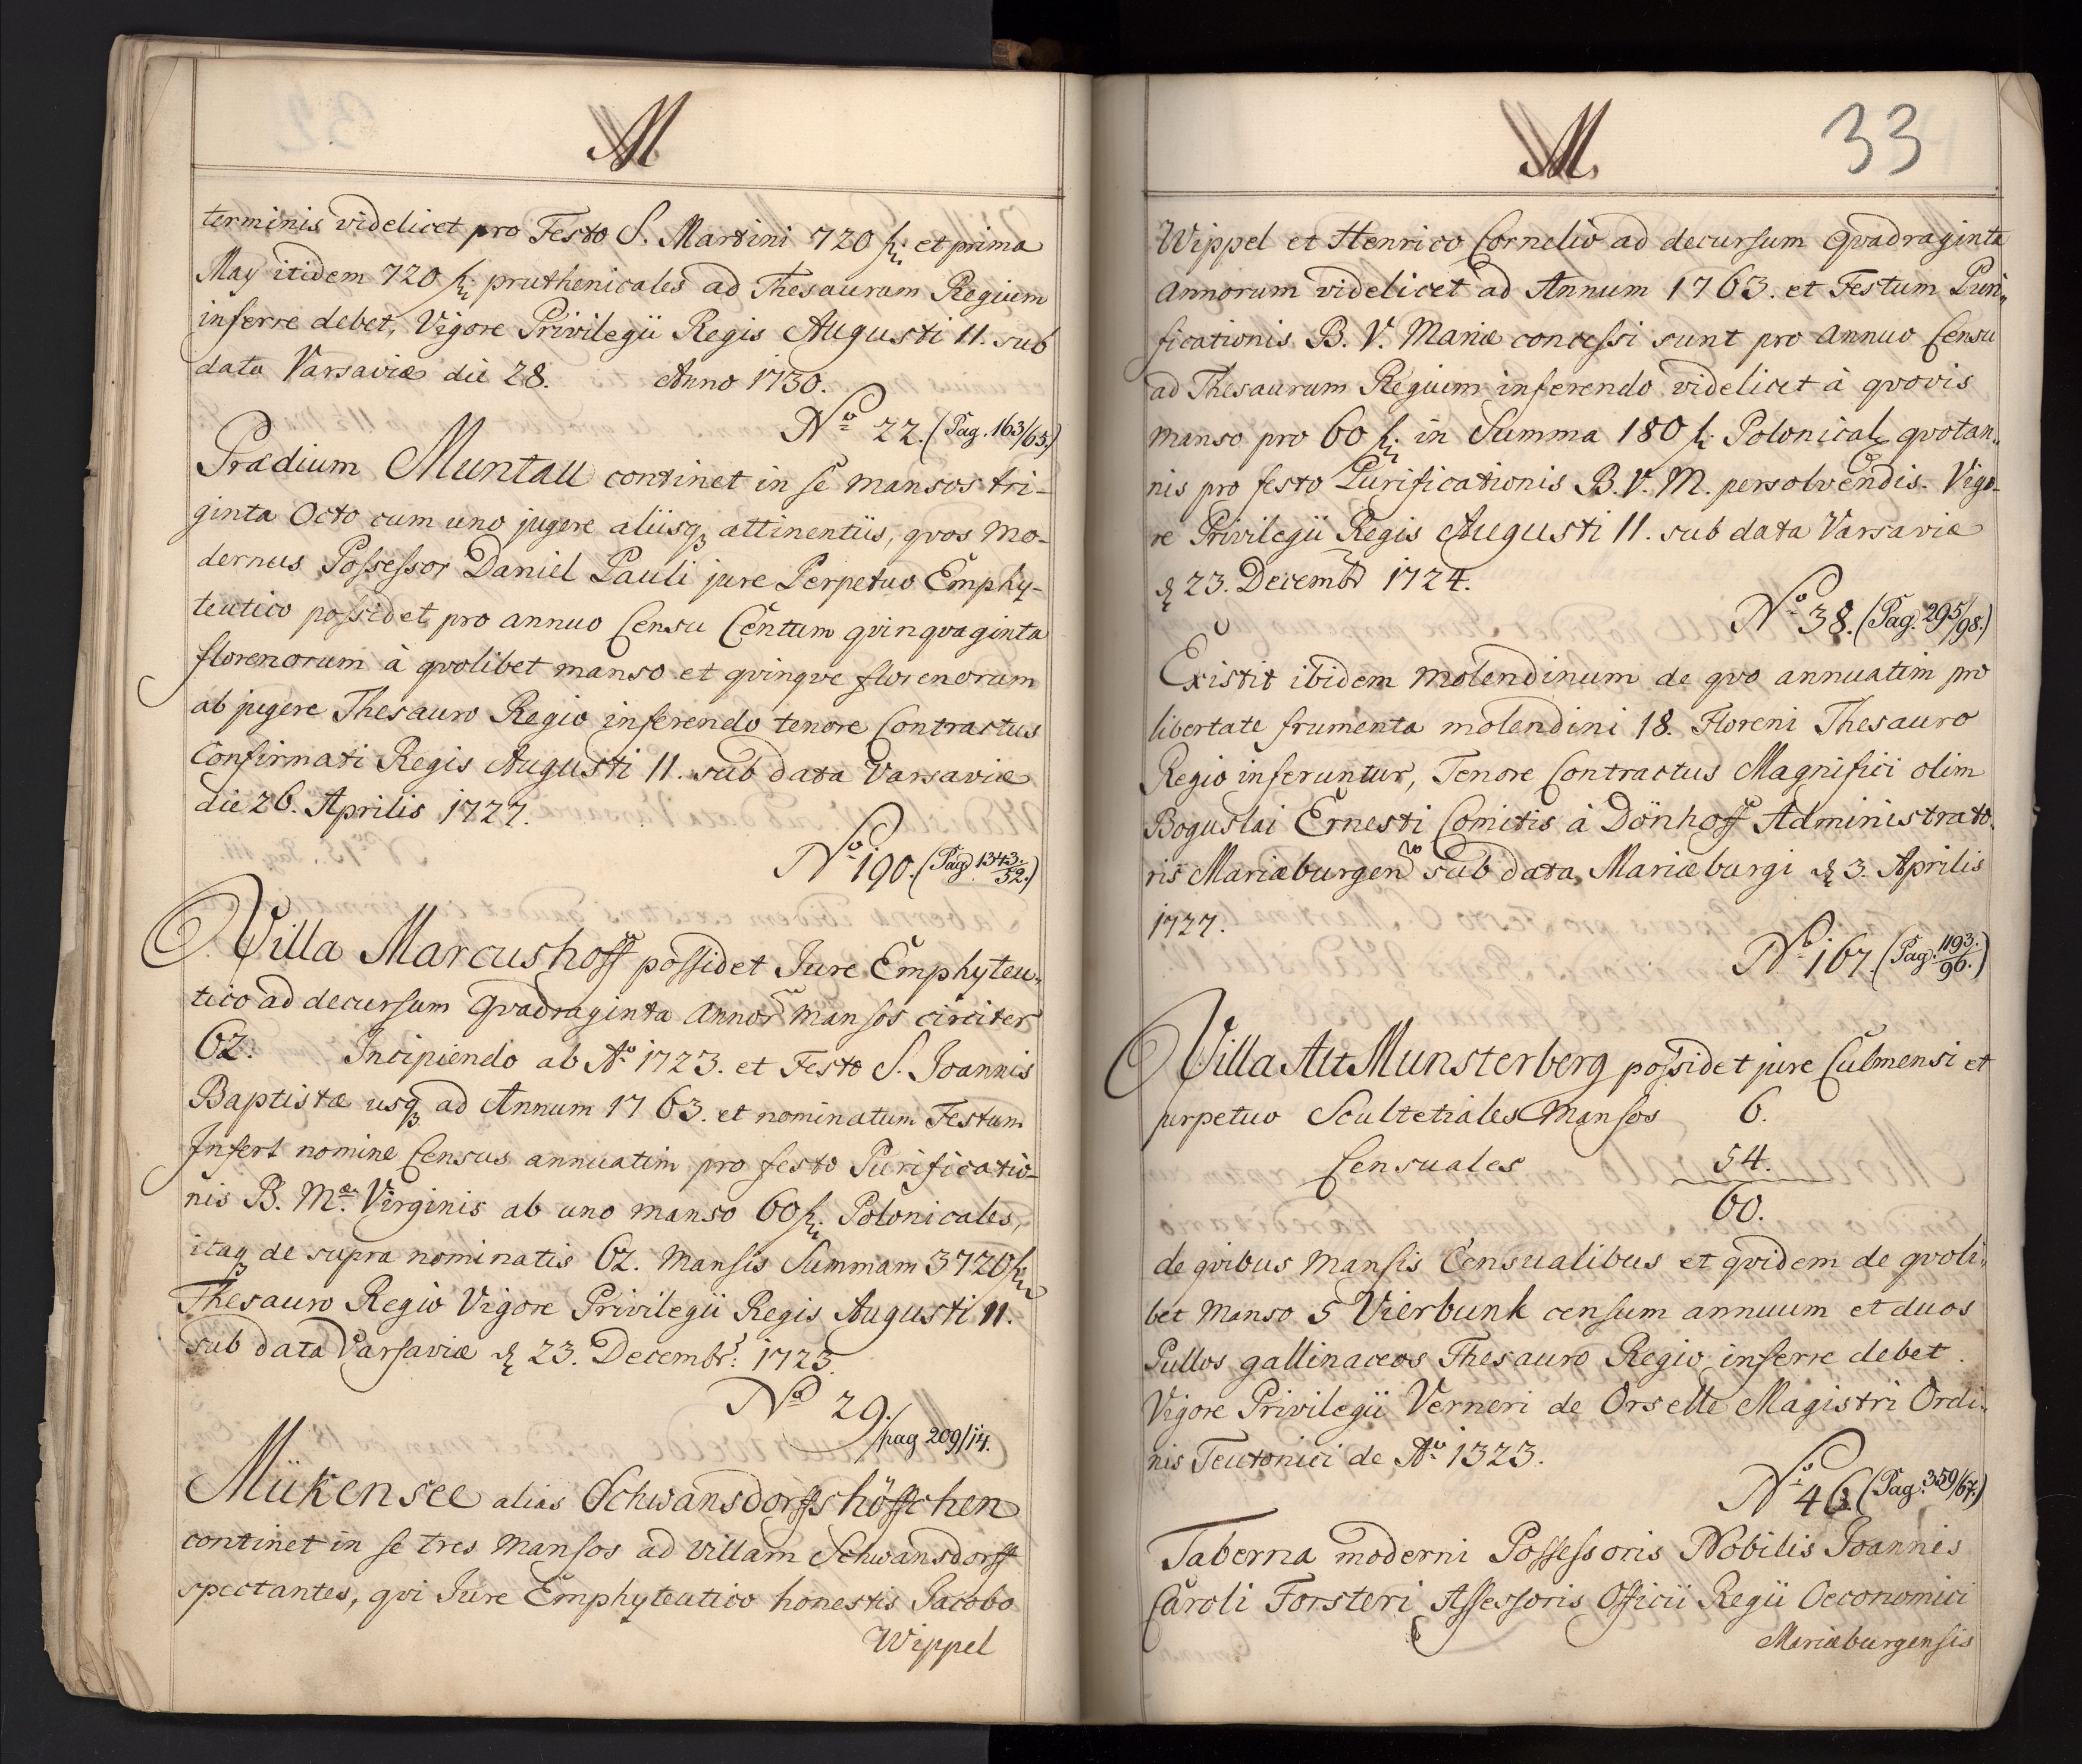 M
terminis videlicet pro Festo S. Martini 720 fl: et prima
May itidem 720 fl: pruthenicales ad Thesaurum Regium
inferre debet, Vigore Privilegii Regis Augusti 11. sub
data Varsaviæ die 28. Anno 1730.
No 22. (Pag. 163/65.)
Prædium Muntau continet in se mansos tri-
ginta Octo cum uno jugere aliisqꝫ attinentiis, qvos Mo-
dernus Possessor Daniel Pauli jure Perpetuo Emphy-
teutico possidet pro annuo Censu Centum qvinqvaginta
florenorum à qvolibet manso et qvinqve florenorum
ab jugere Thesauro Regio inferendo tenore Contractus
Confirmati Regis Augusti 11. sub data Varsaviæ
die 26. Aprilis 1727.
No 190. (Pag. 1343./52.)
Villa Marcushoff possidet Jure Emphyteu-
tico ad decursum Qvadraginta Annor Mansos circiter
62. Incipiendo ab Ao 1723. et Festo S. Joannis
Baptistæ usqꝫ ad Annum 1763. et nominatum Festum
Infert nomine Census annuatim pro festo Purificatio-
nis B. Mæ. Virginis ab uno manso 60 fl: Polonicales,
itaqꝫ de supra nominatis 62. Mansis Summam 3720 fl:
Thesauro Regio Vigore Privilegii Regis Augusti 11.
sub data Varsaviæ d 23. Decembr: 1723.
No 29. pag 209/14.
Mükensee alias Schwansdorffshöffchen
continet in se tres Mansos ad villam Schwansdorff
spectantes, qvi Jure Emphyteutico honestis Jacobo
Wippel
M.
33
Wippel et Henrico Cornelio ad decursum Qvadraginta
Annorum videlicet ad Annum 1763. et Festum Puri-
ficationis B. V. Mariæ concessi sunt pro Annuo Censu
ad Thesaurum Regium inferendo videlicet à qvovis
manso pro 60 fl: in Summa 180 fl: Polonical qvotan-
nis pro festo Purificationis B. V. M. persolvendis. Vigo-
re Privilegii Regis Augusti 11. sub data Varsaviæ
d 23. Decembr 1724.
No 38. (Pag. 295/98.)
Existit ibidem Molendinum de qvo annuatim pro
libertate frumenta molendini 18. Floreni Thesauro
Regio inferuntur, Tenore Contractus Magnifici olim
Boguslai Ernesti Comitis à Dönhoff Administrato-
ris Mariæburgen sub data Mariæburgi d 3. Aprilis
1727.
No 167. (Pag. 1193./96.)
Villa Alt Munsterberg possidet jure Culmensi et
perpetuo Scultetiales Mansos 6.
Censuales 54.
60.
de qvibus Mansis Censualibus et qvidem de qvoli-
bet Manso 5 Vierbunk censum annuum et duos
Pullos gallinaceos Thesauro Regio inferre debet.
Vigore Privilegii Verneri de Orselle Magistri Ordi-
nis Teutonici de Ao 1323.
No 46. (Pag. 359/67.)
Taberna moderni Possessoris Nobilis Joannis
Caroli Forsteri Assessoris Officii Regii Oeconomici
Mariæburgensis